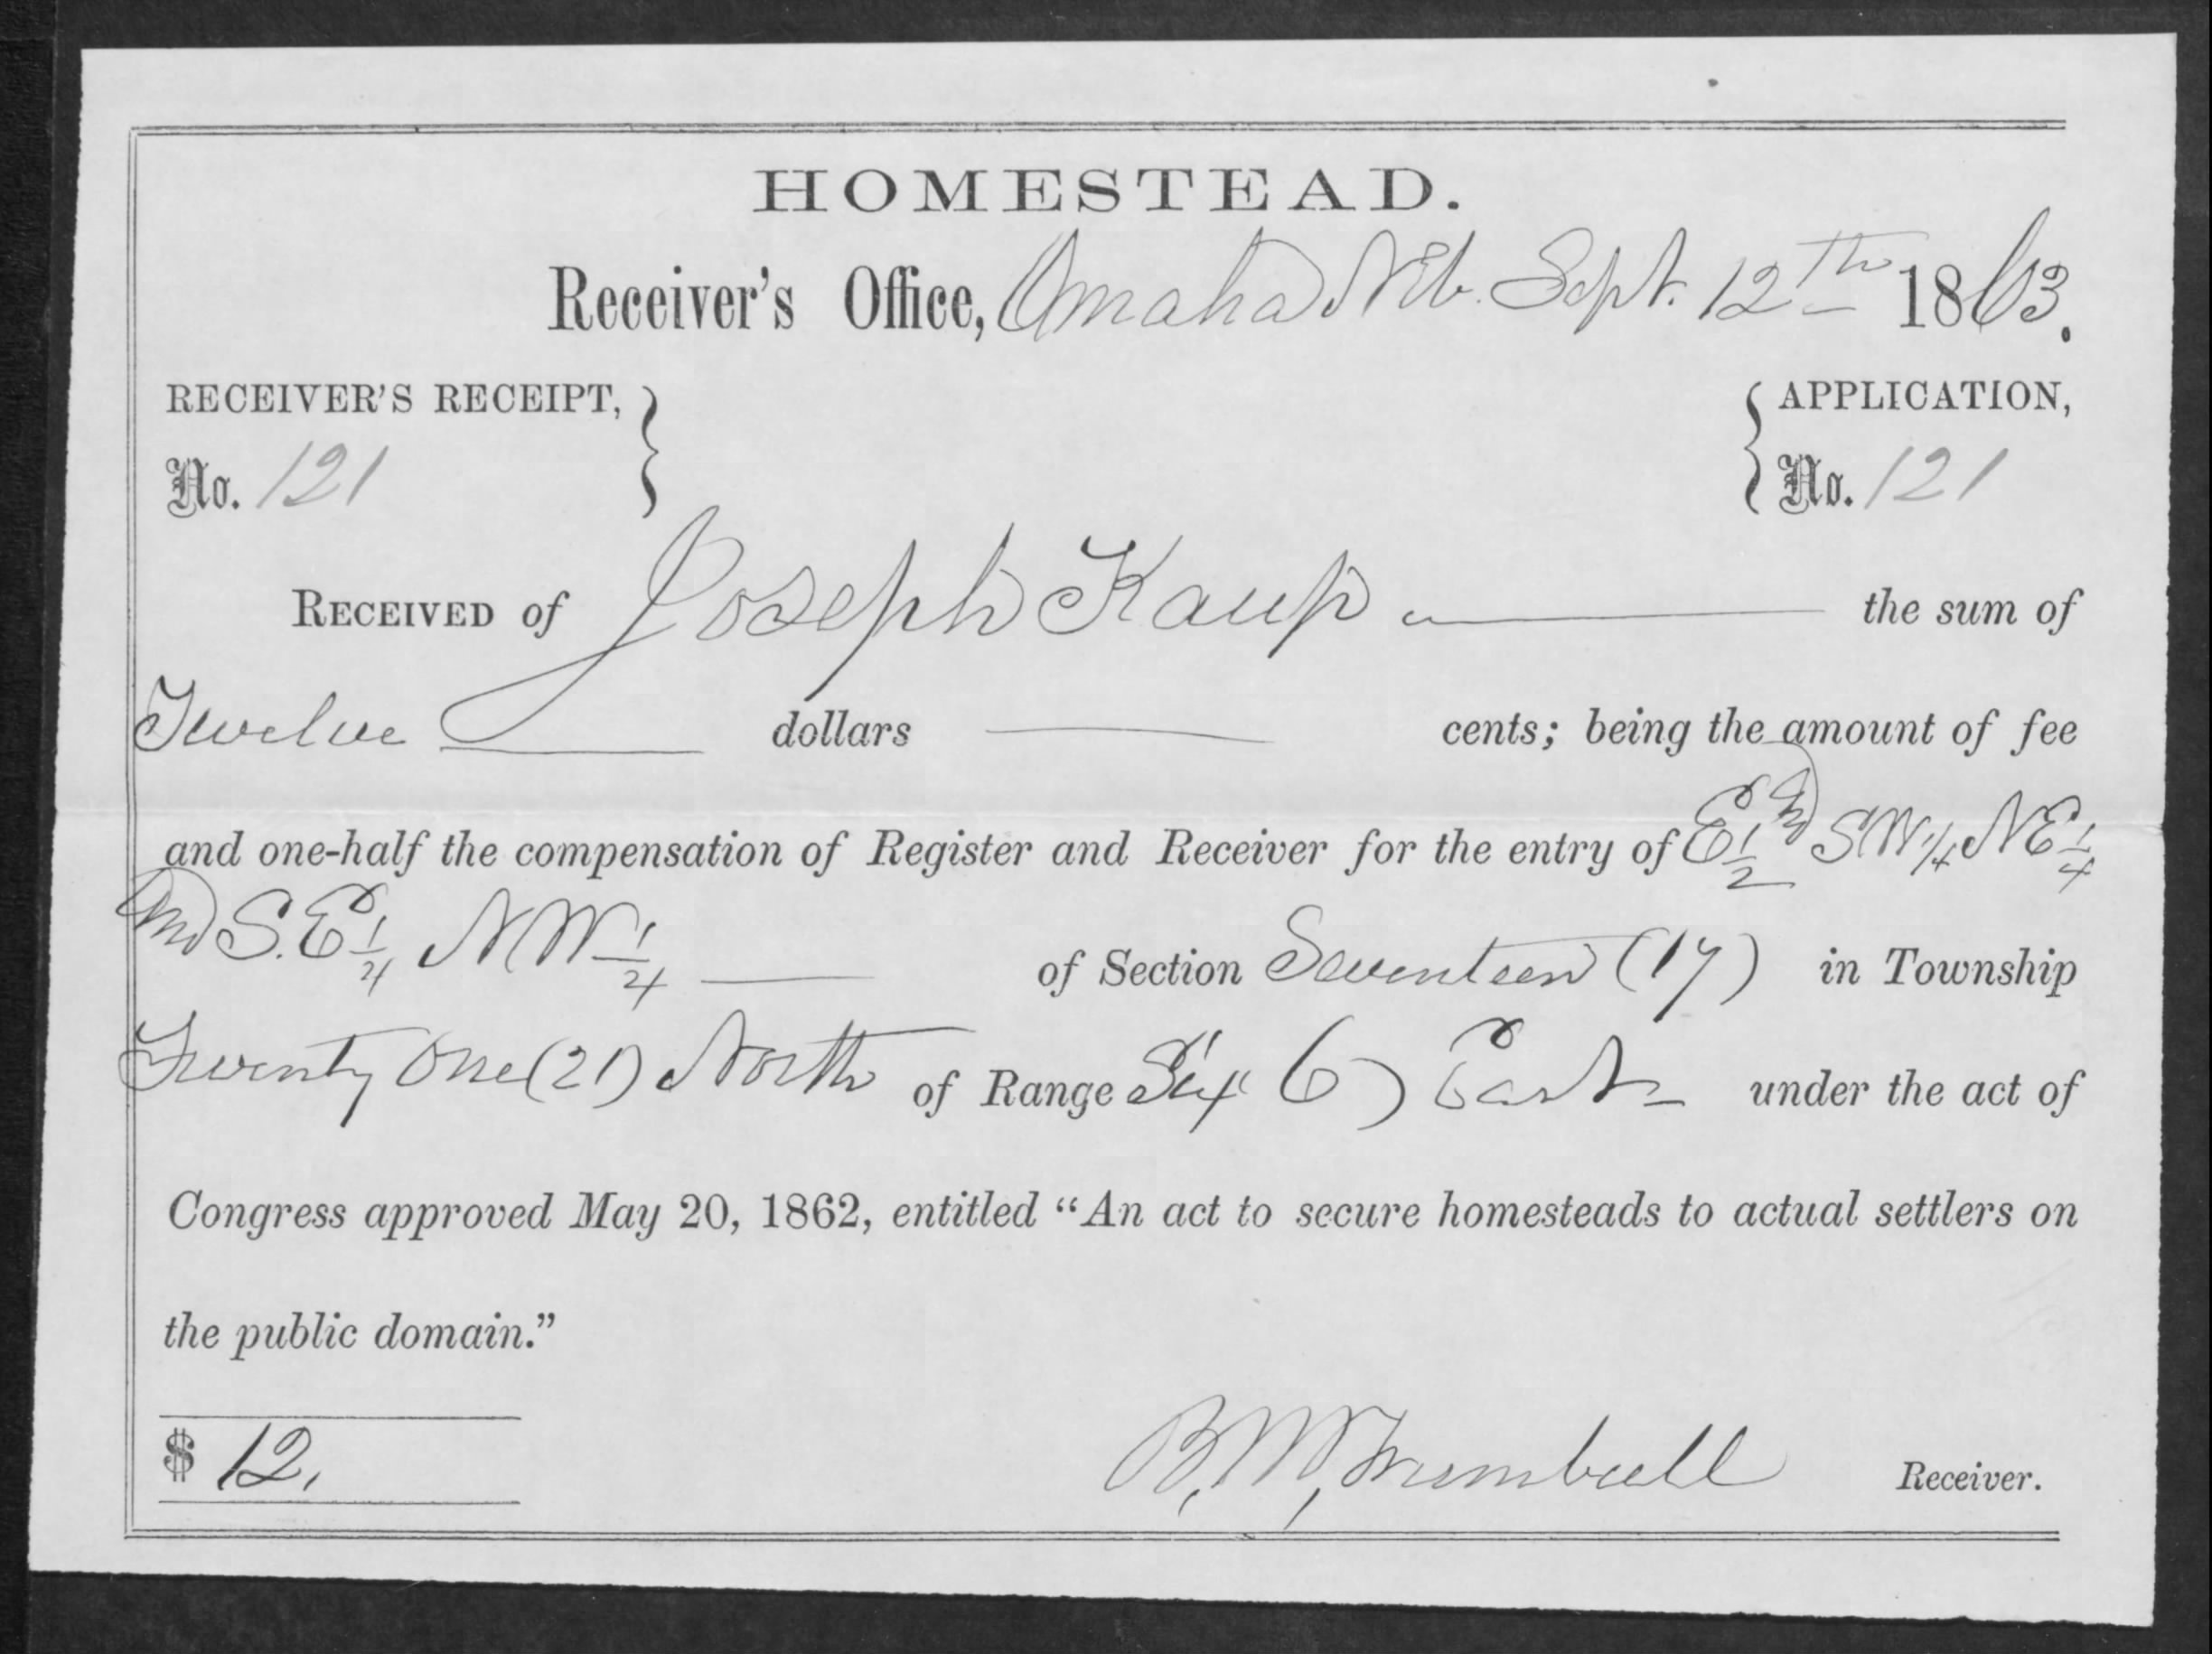 HOMESTEAD.
Receiver's Office, Omaha Neb. Sept. 12th 1863.
RECEIVER'S RECEIPT, APPLICATION,
No. 121 No. 121
RECEIVED of Joseph Kaup the sum of
Twelve dollars cents; being the amount of fee
and one-half the compensation of Register and Receiver for the entry of E 1/2 and SW 1/4 NE 1/4
and S.E 1/4 NW 1/4 of Section Seventeen (17) in Township
Twenty One (21) North of Range Six 6) East under the act of
Congress approved May 20, 1862, entitled “An act to secure homesteads to actual settlers on
the public domain.”
$ 12. B. W, Trumbull Receiver.